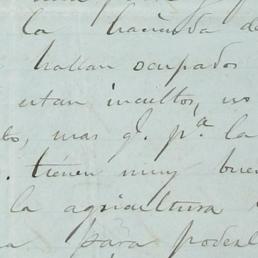 la hacienda de
hallan ocupados
estan incultos, no
mas q. p.ª la
tienen muy bue
la agricultura
para poder